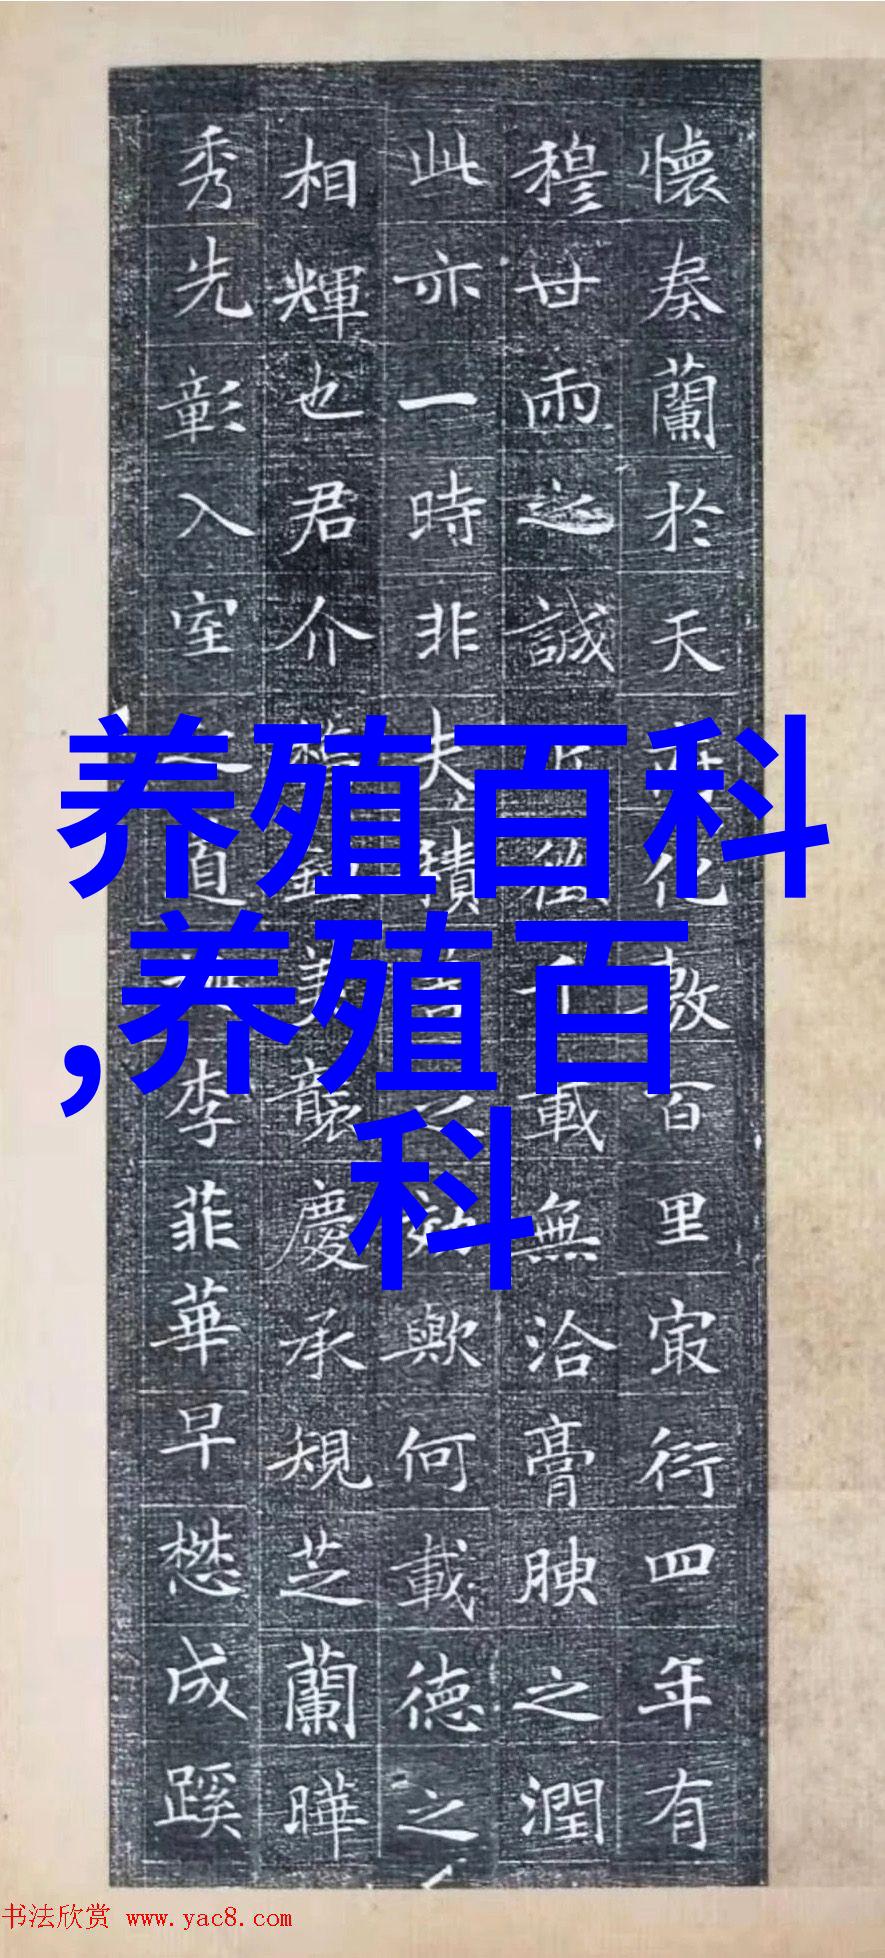 懷奏蘭於天府化敷百里冣衍四年有
穆世雨之誠徑千載無洽膏腴之潤
此亦一時非夫積善之効歟何載德之
相輝也君介美襲慶承規芝蘭曄
秀先彰入室之道李菲華早懋成蹊
养殖百科
,养殖百
科
书法欣赏 www.yac8.com